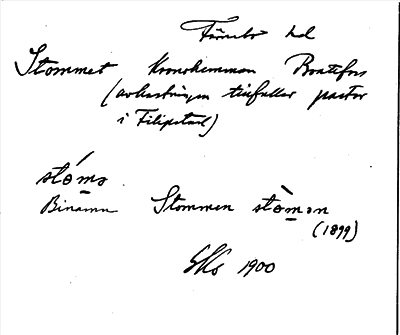 Färnebo hd
Stommet Kronohemman Bratefors
(avkastningen tillfaller pastor
i Filipstad)
stómə
Binamn Stommen stòmən
(1899)
SKs 1900